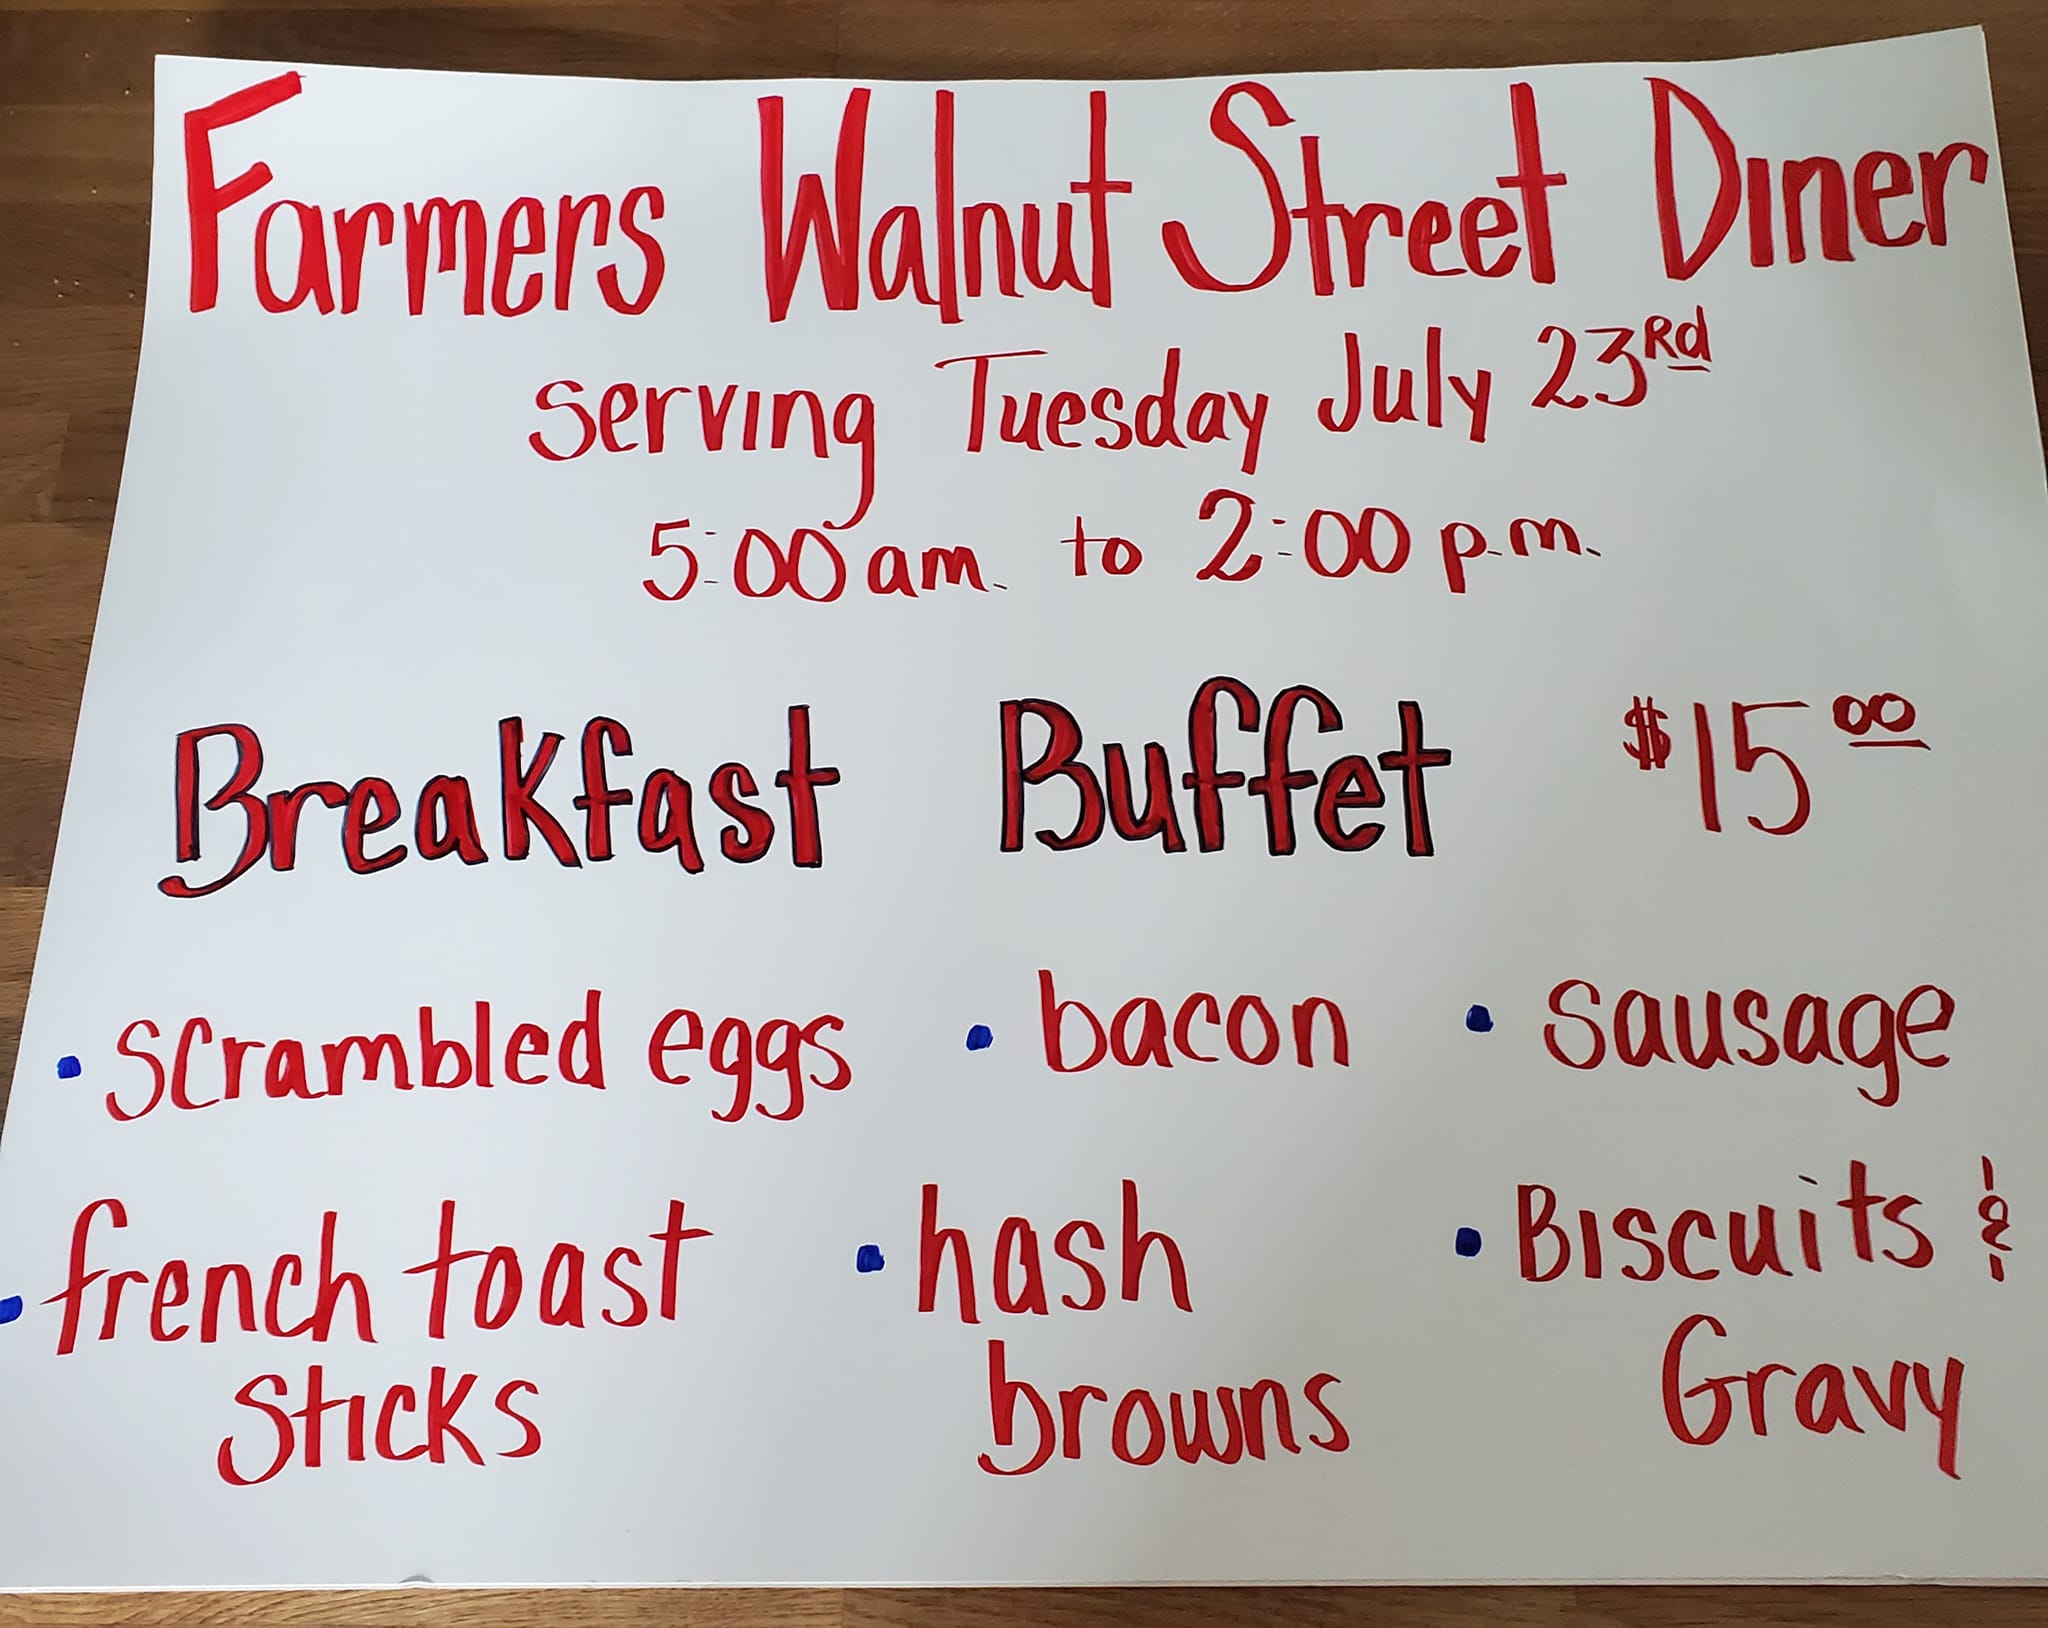 Farmers Walnut Street Diner
serving Tuesday July 23Rd
5:00 am. to 2:00 p.m.
Breakfast Buffet $15 00
• scrambled eggs • bacon • sausage
• french toast sticks
• hash browns
• Biscuits & Gravy